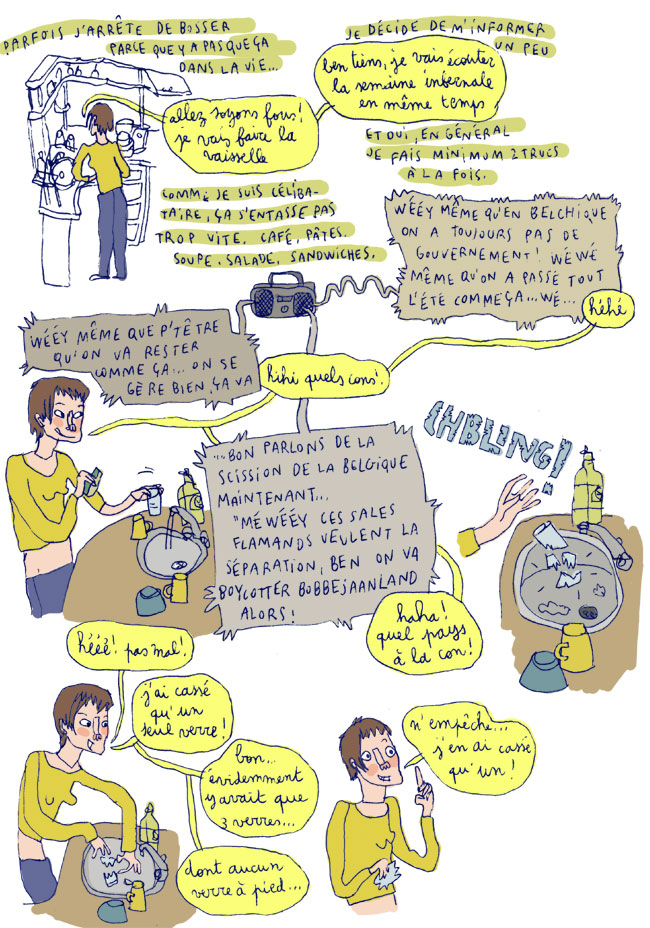 PARFOIS J'ARRÊTE DE BOSSER
PARCE QUE Y A PAS QUE ÇA
DANS LA VIE...
allez soyons fous!
je vais faire la
vaisselle
JE DÉCIDE DE M'INFORMER
UN PEU
ben tiens, je vais écouter
la semaine infernale
en même temps
ET OUI, EN GÉNÉRAL
JE FAIS MINIMUM 2 TRUCS
À LA FOIS.
COMME JE SUIS CÉLIBA-
TAIRE, ÇA S'ENTASSE PAS
TROP VITE. CAFÉ, PÂTES.
SOUPE. SALADE. SANDWICHES.
WÉÉY MÊME QU'EN BELCHIQUE
ON A TOUJOURS PAS DE
GOUVERNEMENT! WÉWÉ
MÊME QU'ON A PASSÉ TOUT
L'ÉTÉ COMME ÇA... WÉ...
héhé
WÉÉY MÊME QUE P'TÊTRE
QU'ON VA RESTER
COMME ÇA... ON SE
GÈRE BIEN, ÇA VA
hihi quels cons!
"... BON PARLONS DE LA
SCISSION DE LA BELGIQUE
MAINTENANT...
"MÉWÉÉY CES SALES
FLAMANDS VEULENT LA
SÉPARATION, BEN ON VA
BOYCOTTER BOBBEJAANLAND
ALORS!
CHBLING!
haha!
quel pays
à la con!
hééé! pas mal!
j'ai cassé
qu'un
seul verre!
bon...
évidemment
y avait que
3 verres...
dont aucun
verre à pied...
n'empêche...
j'en ai cassé
qu'un!